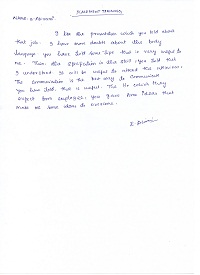 PLACEMENT TRAINING
I like the presentation which you told about
that job. I have some doubts about this body
language. you have told some tips this is very useful to
me. Then this specification is also still you told that
I understand. It will be useful to attend the interview.
The communication is the best way to communicate
you have said, this is useful. The the which they
expect from employees, you gave some ideas that
make me some ideas to